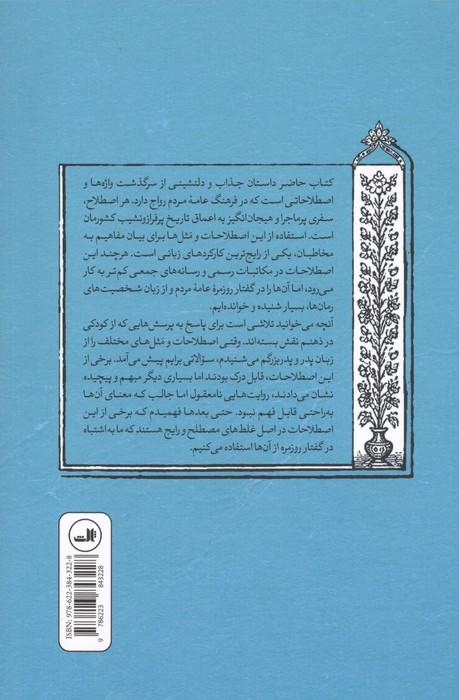 کتاب حاضر داستان جذاب و دلنشینی از سرگذشت واژه‌ها و
اصطلاحاتی است که در فرهنگ عامۀ مردم رواج دارد. هر اصطلاح،
سفری پرماجرا و هیجان‌انگیز به اعماق تاریخ پرفرازونشیب کشورمان
است. استفاده از این اصطلاحات و مَثل‌ها برای بیان مفاهیم به
مخاطبان، یکی از رایج‌ترین کارکردهای زبانی است. هرچند این
اصطلاحات در مکاتبات رسمی و رسانه‌های جمعی کم‌تر به کار
می‌رود، اما آن‌ها را در گفتار روزمرۀ عامۀ مردم و از زبان شخصیت‌های
رمان‌ها، بسیار شنیده و خوانده‌ایم.
آنچه می‌خوانید تلاشی است برای پاسخ به پرسش‌هایی که از کودکی
در ذهنم نقش بسته‌اند. وقتی اصطلاحات و مَثل‌های مختلف را از
زبان پدر و پدربزرگم می‌شنیدم، سؤالاتی برایم پیش می‌آمد. برخی از
این اصطلاحات، قابل درک بودند اما بسیاری دیگر مبهم و پیچیده
نشان می‌دادند، روایت‌هایی نامعقول اما جالب که معنای آن‌ها
به‌راحتی قابل فهم نبود. حتی بعدها فهمیدم که برخی از این
اصطلاحات در اصل غلط‌های مصطلح و رایج هستند که ما به‌اشتباه
در گفتار روزمره از آن‌ها استفاده می‌کنیم.
ISBN: 978-622-384-322-8
9 786223 843228